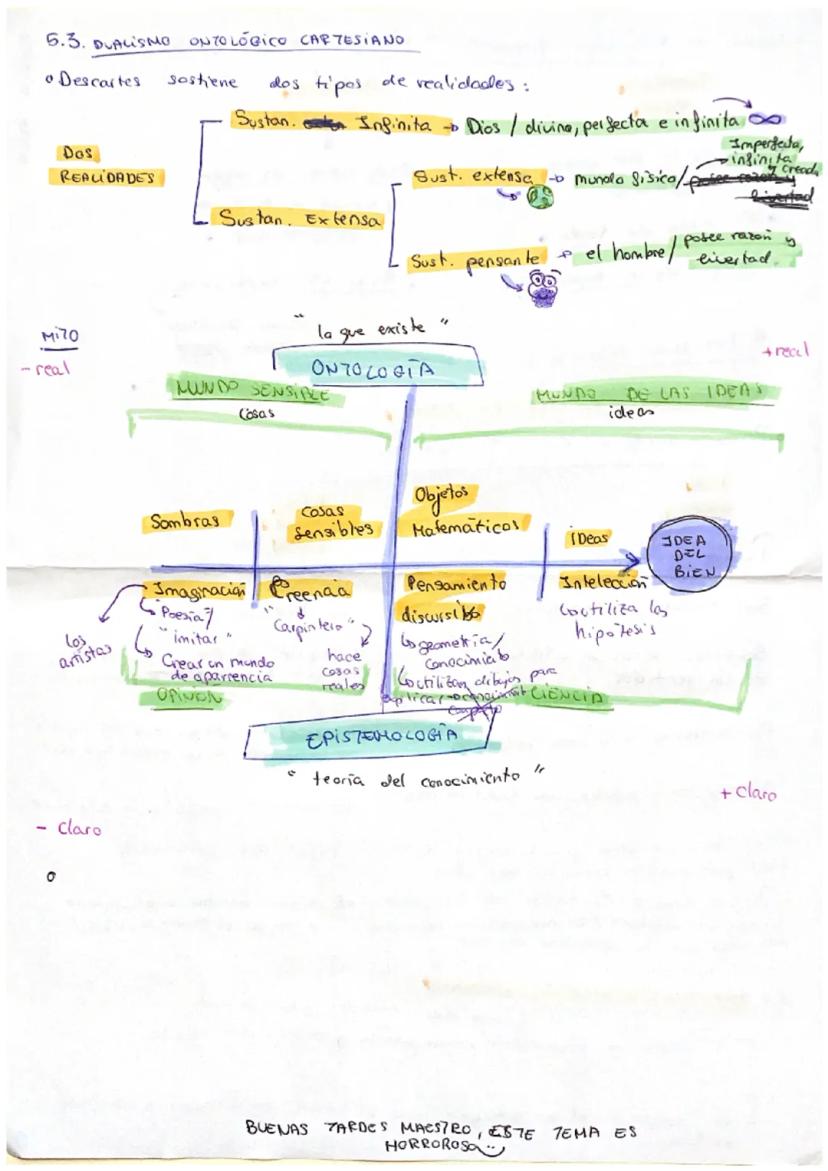 5.3. DUALISMO ONTOLÓGICO CARTESIANO
Descartes sostiene dos tipos de realidades:
DOS REALIDADES
Sustan. Infinita → Dios / divina, perfecta e infinita ∞
Sustan. Extensa
Sust. extensa → mundo físico/
Imperfecta, infinita y creada
Sust. pensante → el hombre / posee razón y livertad.
MITO
- real
+ real
"lo que existe"
ONTOLOGÍA
MUNDO SENSIBLE
cosas
MUNDO DE LAS IDEAS
ideas
Sombras
cosas sensibles
Objetos Matemáticos
iDeas
IDEA DEL BIEN
Imaginación
Creencia
Pensamiento discursibo
Intelección
los artistas
Poesía/ "imitar"
Crear un mundo de apariencia
"Carpintero"
hace cosas reales
geometría/ conocimiento
utilizan dibujos para explicar
utiliza las hipótesis
OPINION
CIENCIA
EPISTEMOLOGÍA
"teoría del conocimiento"
+ Claro
- Claro
BUENAS TARDES MAESTRO, ESTE TEMA ES
HORROROSO